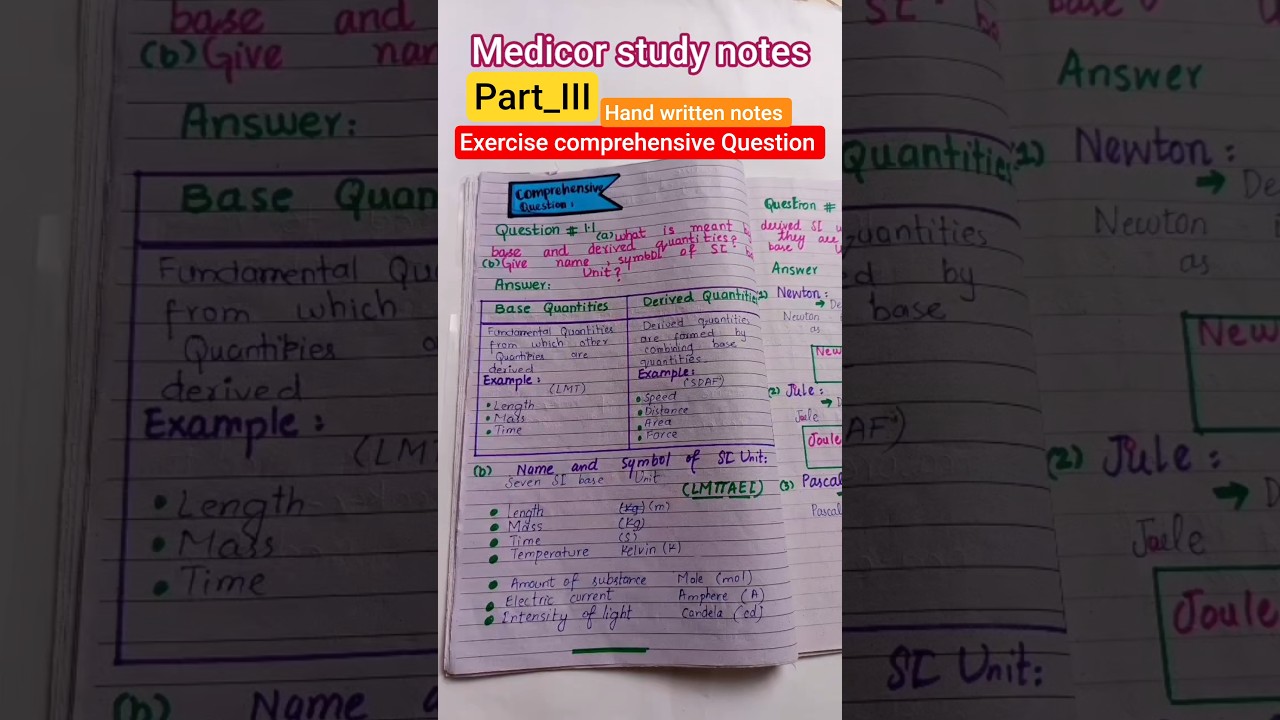 Medicor study notes
Part_III
Hand written notes
Exercise comprehensive Question
Comprehensive
Question:
Question # 1.1 (a) what is meant b
base and derived quantities?
(b) Give name, symbol of SI ba
Unit?
Answer:
Base Quantities
Fundamental Quantities
from which other
Quantities are
derived
Example:
(LMT)
Length
Mass
Time
Derived Quantities
Derived quantities
are formed by
combining base
quantities.
Example:
(SDAF)
Speed
Distance
Area
Force
(b) Name and symbol of SI Unit:
Seven SI base Unit
(LMTTAEI)
Length (kg) (m)
Mass (Kg)
Time (S)
Temperature Kelvin (K)
Amount of substance Mole (mol)
Electric current Amphere (A)
Intensity of light Candela (cd)
Question #
derived SI u
they are
base
Answer
(1) Newton:
→ De
Newton
as
New
(2) Jule:
→ D
Joele
Joule
(3) Pascal
Pascal
base and
(b) Give nam
Answer:
Base Quan
Fundamental Qu
from which
Quantities o
derived
Example:
(LM
Length
Mass
Time
(b) Name a
SI
Answer
Quantities
(1) Newton:
→ De
Newton
as
quantities
ed by
base
New
AF)
(2) Jule:
→ D
Joele
Joule
SI Unit: